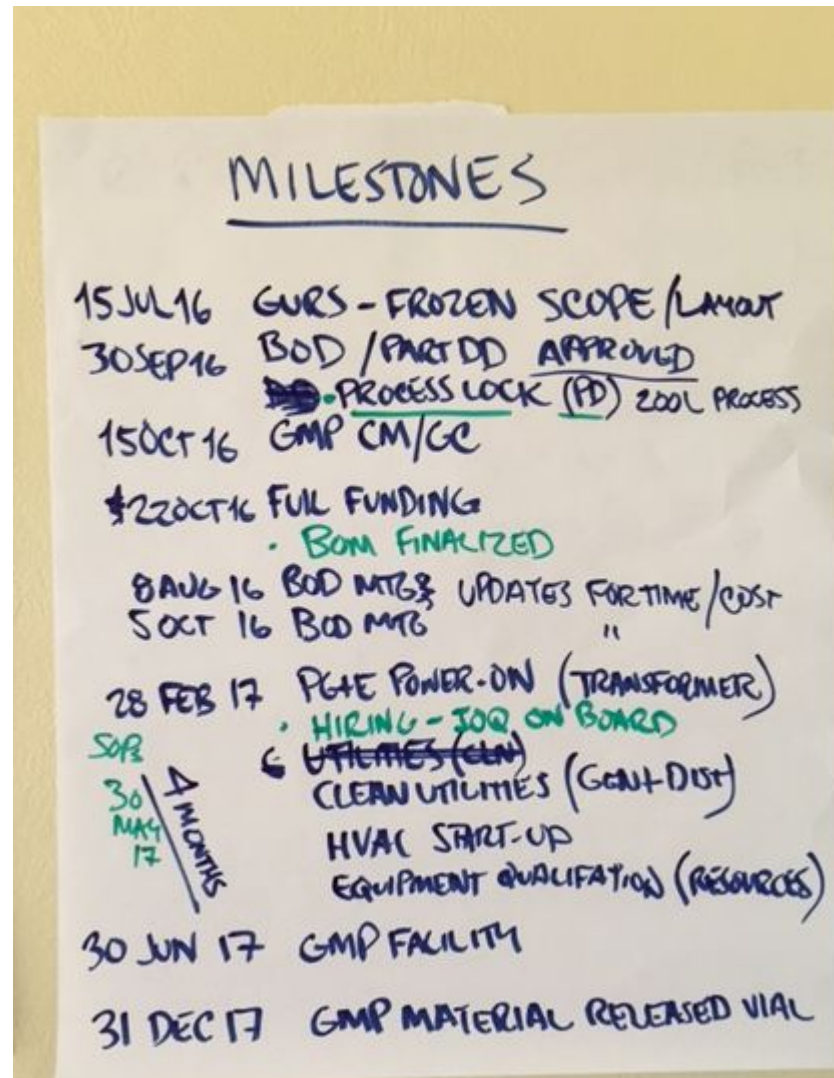 MILESTONES
15 JUL 16 GURS - FROZEN SCOPE / LAYOUT
30 SEP 16 BOD / PART DD APPROVED
• PROCESS LOCK (PD) 200L PROCESS
15 OCT 16 GMP CM/GC
22 OCT 16 FULL FUNDING
• BOM FINALIZED
8 AUG 16 BOD MTG } UPDATES FOR TIME / COST
5 OCT 16 BOD MTG "
28 FEB 17 PG+E POWER-ON (TRANSFORMER)
• HIRING - IOQ ON BOARD
SOPs
UTILITIES (CLN)
30 MAY 17
4 MONTHS
CLEAN UTILITIES (GEN + DIST)
HVAC START-UP
EQUIPMENT QUALIFATION (RESOURCES)
30 JUN 17 GMP FACILITY
31 DEC 17 GMP MATERIAL RELEASED VIAL